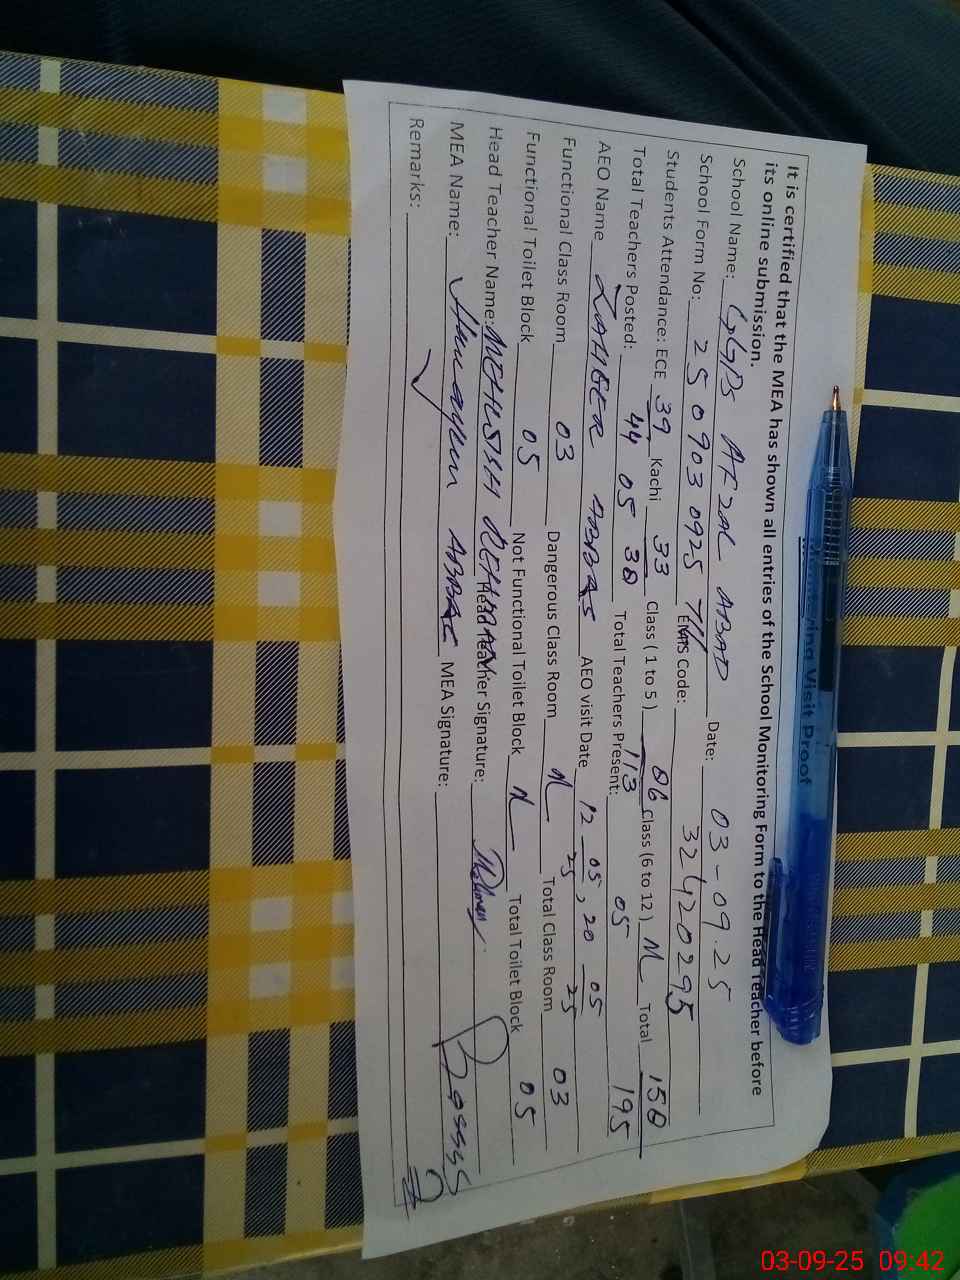 Monitoring Visit Proof
It is certified that the MEA has shown all entries of the School Monitoring Form to the Head Teacher before
its online submission.
School Name: GGPS AFZAL ABAD Date: 03-09.25
School Form No: 25 0903 0925 EMIS Code: 32420295
Students Attendance: ECE 39 Kachi 33 Class ( 1 to 5 ) 86 Class (6 to 12 ) Total 158
44 05 38 113 195
Total Teachers Posted: Total Teachers Present: 05
AEO Name ZAHEER ABBAS AEO visit Date 12 05 25, 20 05 25
Functional Class Room 03 Dangerous Class Room Total Class Room 03
Functional Toilet Block 05 Not Functional Toilet Block Total Toilet Block 05
Head Teacher Name: MEHWISH REHMAN Head Teacher Signature:
MEA Name: Humayun ABBAS MEA Signature:
Remarks:
03-09-25 09:42